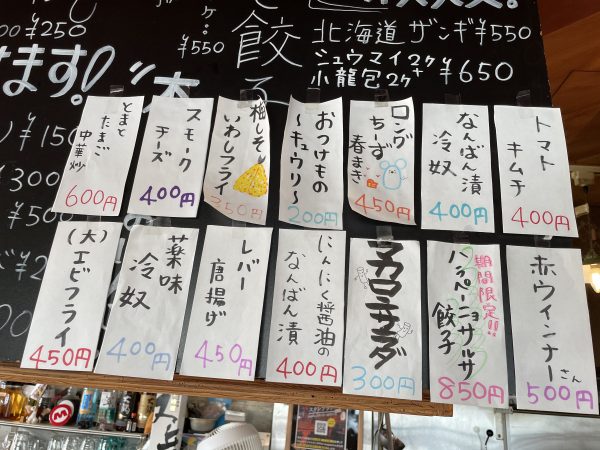 ¥250
ケ…
¥550
餃子
北海道 ザンギ ¥550
シュウマイ2ケ
小龍包2ケ
+
¥650
ます!
¥150
300
¥500
¥2
とまと
たまご
中華炒
600円
スモーク
チーズ
400円
梅しそ
いわしフライ
350円
おつけもの
〜キュウリ〜
200円
ロング
ちーず
春まき
450円
なんばん漬
冷奴
400円
トマト
キムチ
400円
(大)エビフライ
450円
薬味
冷奴
400円
レバー
唐揚げ
450円
にんにく醤油の
なんばん漬
400円
マカロニサラダ
300円
期間限定!!
ハラペーニョサルサ
餃子
850円
赤ウインナーさん
500円